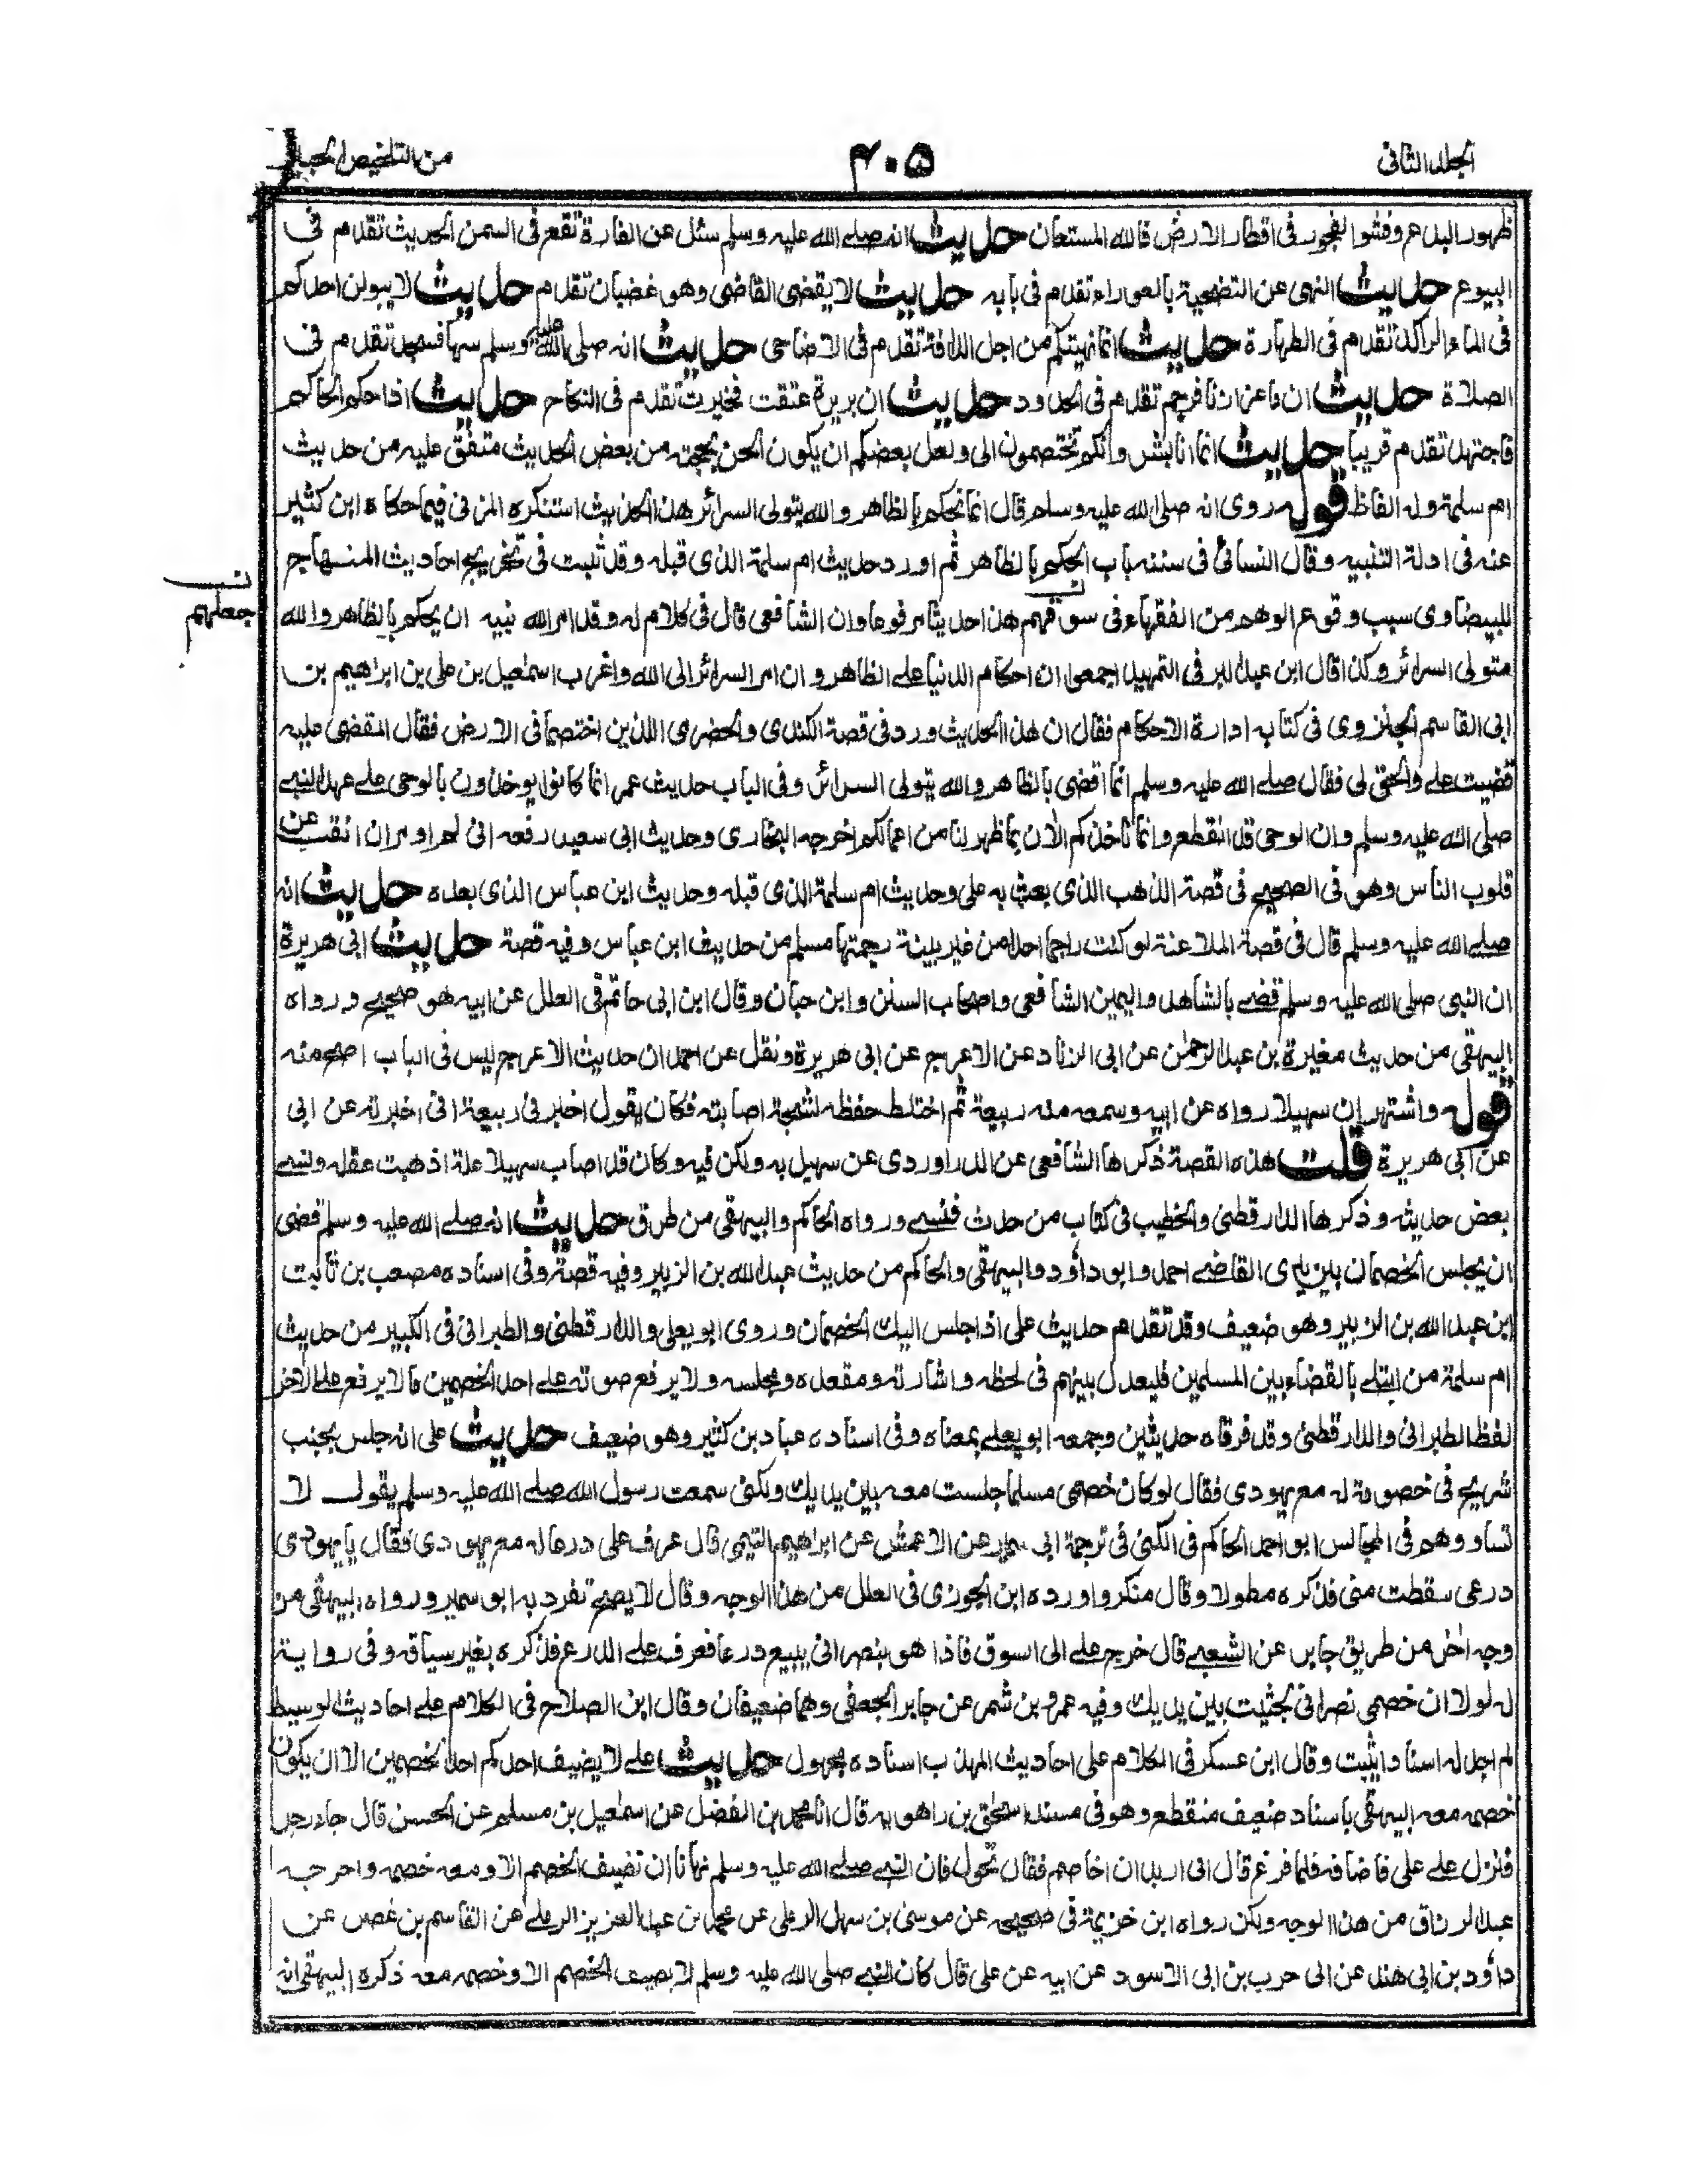 الجلد الثانی
۴۰۵
من التلخيص الحبير
ظهور البدع وفشو الفجور فی اقطار الارض فالله المستعان حديث انه صلے الله عليه وسلم سئل عن الفارة تقع فی السمن الحديث تقدم فی
البيوع حديث النهی عن التضحية بالعوراء تقدم فی بابه حديث لا يقضی القاضی وهو غضبان تقدم حديث لا يبولن احدكم
فی الماء الراكد تقدم فی الطهارة حديث انما نهيتكم من اجل الدافة تقدم فی الاضاحی حديث انه صلی الله عليه وسلم سها فسجد تقدم فی
الصلاة حديث ان ماعزا زنا فرجم تقدم فی الحدود حديث ان بريرة عتقت فخيرت تقدم فی النكاح حديث اذا حكم الحاكم
فاجتهد تقدم قريبا حديث انما انا بشر وانكم تختصمون الی ولعل بعضكم ان يكون الحن بحجته من بعض الحديث متفق عليه من حديث
ام سلمة وله الفاظ قوله روی انه صلی الله عليه وسلم قال انما نحكم بالظاهر والله يتولی السرائر هذا الحديث استنكره المزنی فيما حكاه ابن كثير
عنه فی ادلة التنبيه وقال النسائی فی سننه باب الحكم بالظاهر ثم اورد حديث ام سلمة الذی قبله وقد ثبت فی تخريج احاديث المنهاج
للبيضاوی سبب وقوع الوهم من الفقهاء فی سوقهم هذا حديثا مرفوعا وان الشافعی قال فی كلام له وقد امر الله نبيه ان يحكم بالظاهر والله
نسب
جعلهم
متولی السرائر وكذا قال ابن عبد البر فی التمهيد اجمعوا ان احكام الدنيا علے الظاهر وان امر السرائر الی الله واغرب اسمعيل بن علی بن ابراهيم بن
ابی القاسم الجنزوی فی كتابه ادارة الاحكام فقال ان هذا الحديث ورد فی قصة الكندی والحضرمی اللذين اختصما فی الارض فقال المقضی عليه
قضيت علے والحق لی فقال صلے الله عليه وسلم انما اقضی بالظاهر والله يتولی السرائر وفی الباب حديث عمر انما كانوا يوخذون بالوحی علے عهد النبے
صلی الله عليه وسلم وان الوحی قد انقطع وانما ناخذكم الأن بما ظهر لنا من اعمالكم اخرجه البخاری وحديث ابی سعيد رفعه انی لم اومر ان انقب عن
قلوب الناس وهو فی الصحيح فی قصة الذهب الذی بعث به علی وحديث ام سلمة الذی قبله وحديث ابن عباس الذی بعده حديث انه
صلے الله عليه وسلم قال فی قصة الملاعنة لو كنت راجما احدا من غير بينة رجمتها مسلم من حديث ابن عباس وفيه قصة حديث ابی هريرة
ان النبی صلی الله عليه وسلم قضے بالشاهد واليمين الشافعی واصحاب السنن وابن حبان وقال ابن ابی حاتم فی العلل عن ابيه هو صحيح ورواه
البيهقی من حديث مغيرة بن عبد الرحمن عن ابی الزناد عن الاعرج عن ابی هريرة ونقل عن احمد ان حديث الاعرج ليس فی الباب اصح منه
قوله واشتهر ان سهيلا رواه عن ابيه وسمعه منه ربيعة ثم اختلط حفظه لشجة اصابته فكان يقول اخبرنی ربيعة انی اخبرته عن ابی
عن ابی هريرة قلت هذه القصة ذكرها الشافعی عن الدراوردی عن سهيل به ولكن فيه وكان قد اصاب سهيلا علة اذهبت عقله ونسے
بعض حديثه وذكرها الدارقطنی والخطيب فی كتاب من حدث فنسے ورواه الحاكم والبيهقی من طرق حديث انه صلے الله عليه وسلم قضی
ان يجلس الخصمان بين يدی القاضے احمد وابو داؤد والبيهقی والحاكم من حديث عبد الله بن الزبير وفيه قصة وفی اسناده مصعب بن ثابت
ابن عبد الله بن الزبير وهو ضعيف وقد تقدم حديث علی اذا جلس اليك الخصمان وروی ابو يعلی والدارقطنی والطبرانی فی الكبير من حديث
ام سلمة من ابتلے بالقضاء بين المسلمين فليعدل بينهم فی لحظه واشارته ومقعده ومجلسه ولا يرفع صوته علے احد الخصمين ما لا يرفع علے الأخر
لفظ الطبرانی والدارقطنی وقد فرقاه حديثين وجمعه ابو يعلے بمعناه وفی اسناده عباد بن كثير وهو ضعيف حديث علی انه جلس بجنب
شريح فی خصومة له مع يهودی فقال لو كان خصمی مسلما جلست معه بين يديك ولكنی سمعت رسول الله صلے الله عليه وسلم يقول لا
تساووهم فی المجالس ابو احمد الحاكم فی الكنی فی ترجمة ابی سمير عن الاعمش عن ابراهيم التيمی قال عرف علی درعا له مع يهودی فقال يا يهودی
درعی سقطت منی فذكره مطولا وقال منكر واورده ابن الجوزی فی العلل من هذا الوجه وقال لا يصح تفرد به ابو سمير ورواه البيهقی من
وجه أخر من طريق جابر عن الشعبے قال خرج علے الی السوق فاذا هو بنصرانی يبيع درعا فعرف علے الدرع فذكره بغير سياقه وفی رواية
له لولا ان خصمی نصرانی لجثيت بين يديك وفيه عمرو بن شمر عن جابر الجعفی وهما ضعيفان وقال ابن الصلاح فی الكلام علے احاديث الوسيط
لم اجد له اسنادا يثبت وقال ابن عسكر فی الكلام علی احاديث المهذب اسناده مجهول حديث علے لا يضيف احدكم احد الخصمين الا ان يكون
خصمه معه البيهقی باسناد ضعيف منقطع وهو فی مسند اسحٰق بن راهويه قال انا محمد بن الفضل عن اسمٰعيل بن مسلم عن الحسن قال جاء رجل
فنزل علے علی فاضافه فلما فرغ قال انی اريد ان اخاصم فقال تحول فان النبے صلے الله عليه وسلم نهانا ان نضيف الخصم الا ومعه خصمه واخرجه
عبد الرزاق من هذا الوجه ولكن رواه ابن خزيمة فی صحيحه عن موسی بن سهل الرملی عن محمد بن عبد العزيز الرملے عن القاسم بن غصن عن
داؤد بن ابی هند عن ابی حرب بن ابی الاسود عن ابيه عن علی قال كان النبے صلی الله عليه وسلم لا يضيف الخصم الا وخصمه معه ذكره البيهقی انه